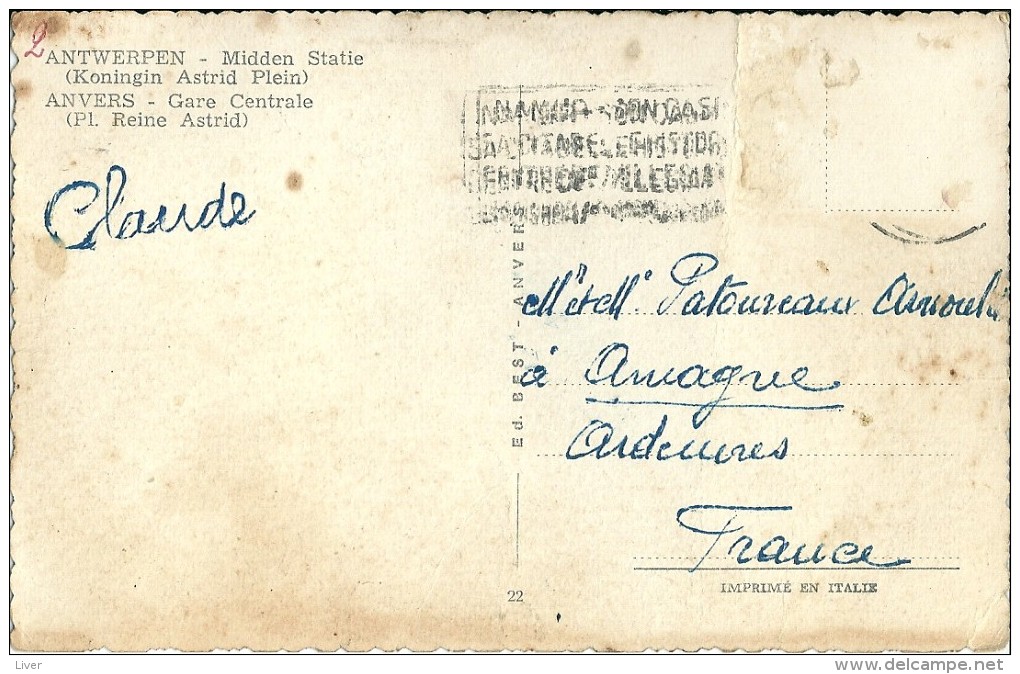 2
ANTWERPEN - Midden Statie
(Koningin Astrid Plein)
ANVERS - Gare Centrale
(Pl. Reine Astrid)
Claude
Ed. BEST - ANVERS
Mr et Me Patoureaux Arnould
à Amagne
Ardennes
France
22
IMPRIMÉ EN ITALIE
Liver
www.delcampe.net